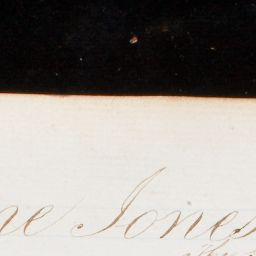 ne Jones